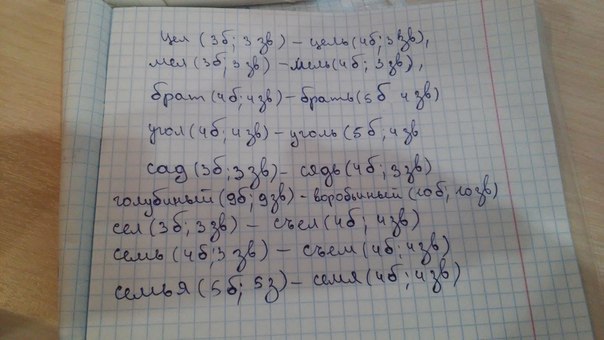 цел (3б; 3 зв) – цель (4б; 3зв),
мел (3б; 3 зв) – мель (4б; 3 зв),
брат (4б; 4зв) – брать (5б 4зв)
угол (4б; 4зв) – уголь (5б; 4зв
сад (3б; 3зв) – сядь (4б; 3зв)
голубиный (9б; 9зв) – воробьиный (10б; 10зв)
сел (3б; 3зв) – съел (4б; 4зв)
семь (4б; 3 зв) – съем (4б; 4зв)
семья (5б; 5з) – семя (4б; 4зв)